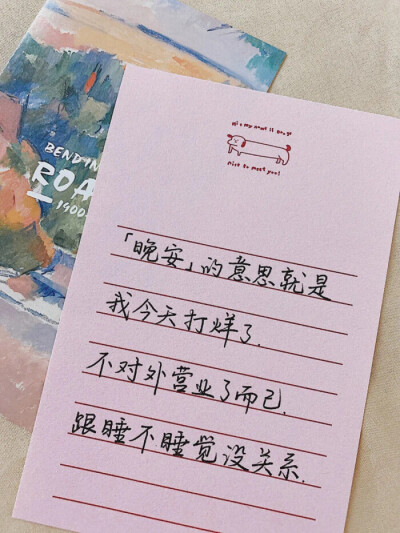 BENDIN
ROA
1900
nice to meet you!
「晚安」的意思就是
我今天打烊了.
不对外营业了而已.
跟睡不睡觉没关系.